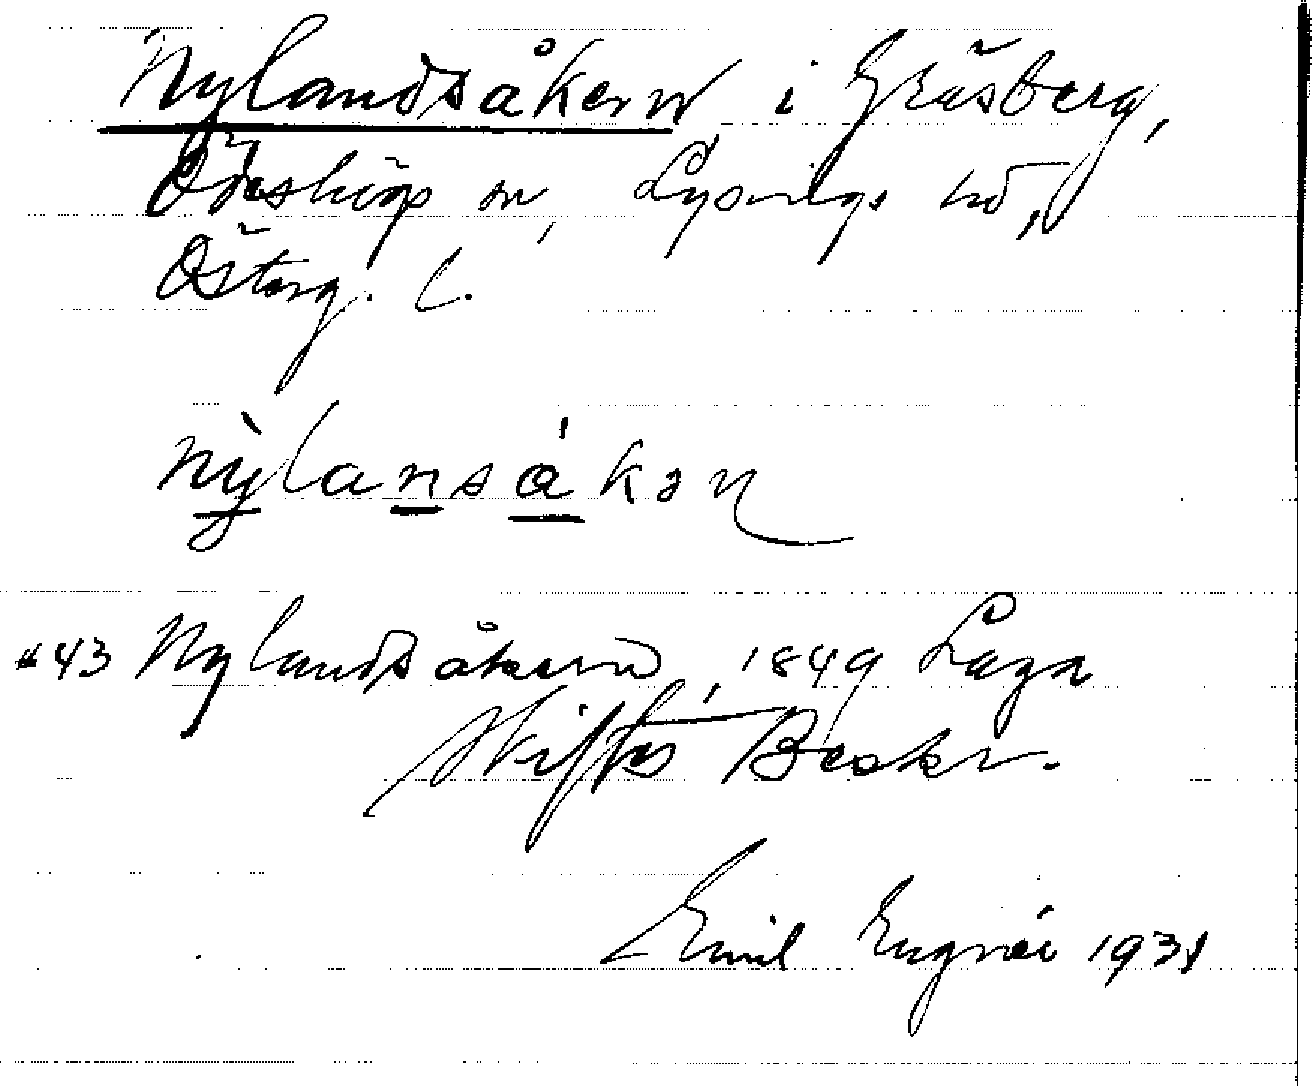 Nylandsåkern i Gräsberg,
Ödeshögs sn, Lysings hd,
Österg. l.
nỳlansåkən
"43 Nylandsåkern, 1849 Laga
Skiftes Beskr.
Emil Engnér 1931